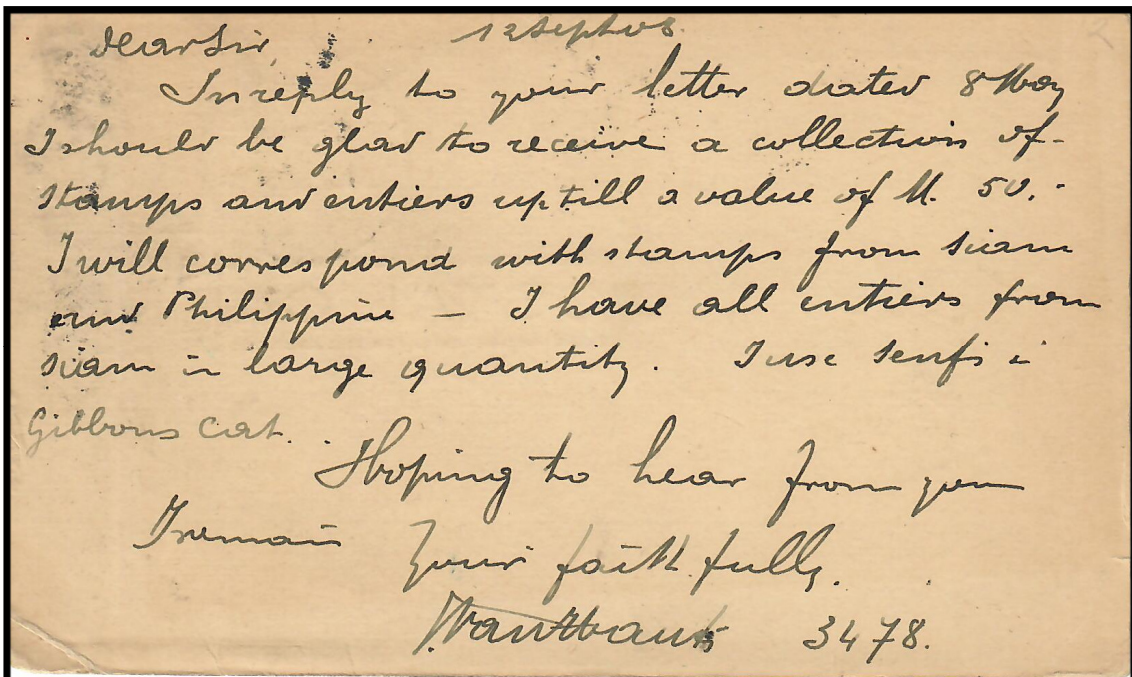 Dear Sir, 12 Sept 03
In reply to your letter dated 8 May
I should be glad to receive a collection of
stamps and entiers up till a value of M. 50.-
I will correspond with stamps from Siam
and Philippine — I have all entiers from
Siam in large quantity. I use Senfs i
Gibbons Cat.
Hoping to hear from you
I remain
Your faithfully.
3478.